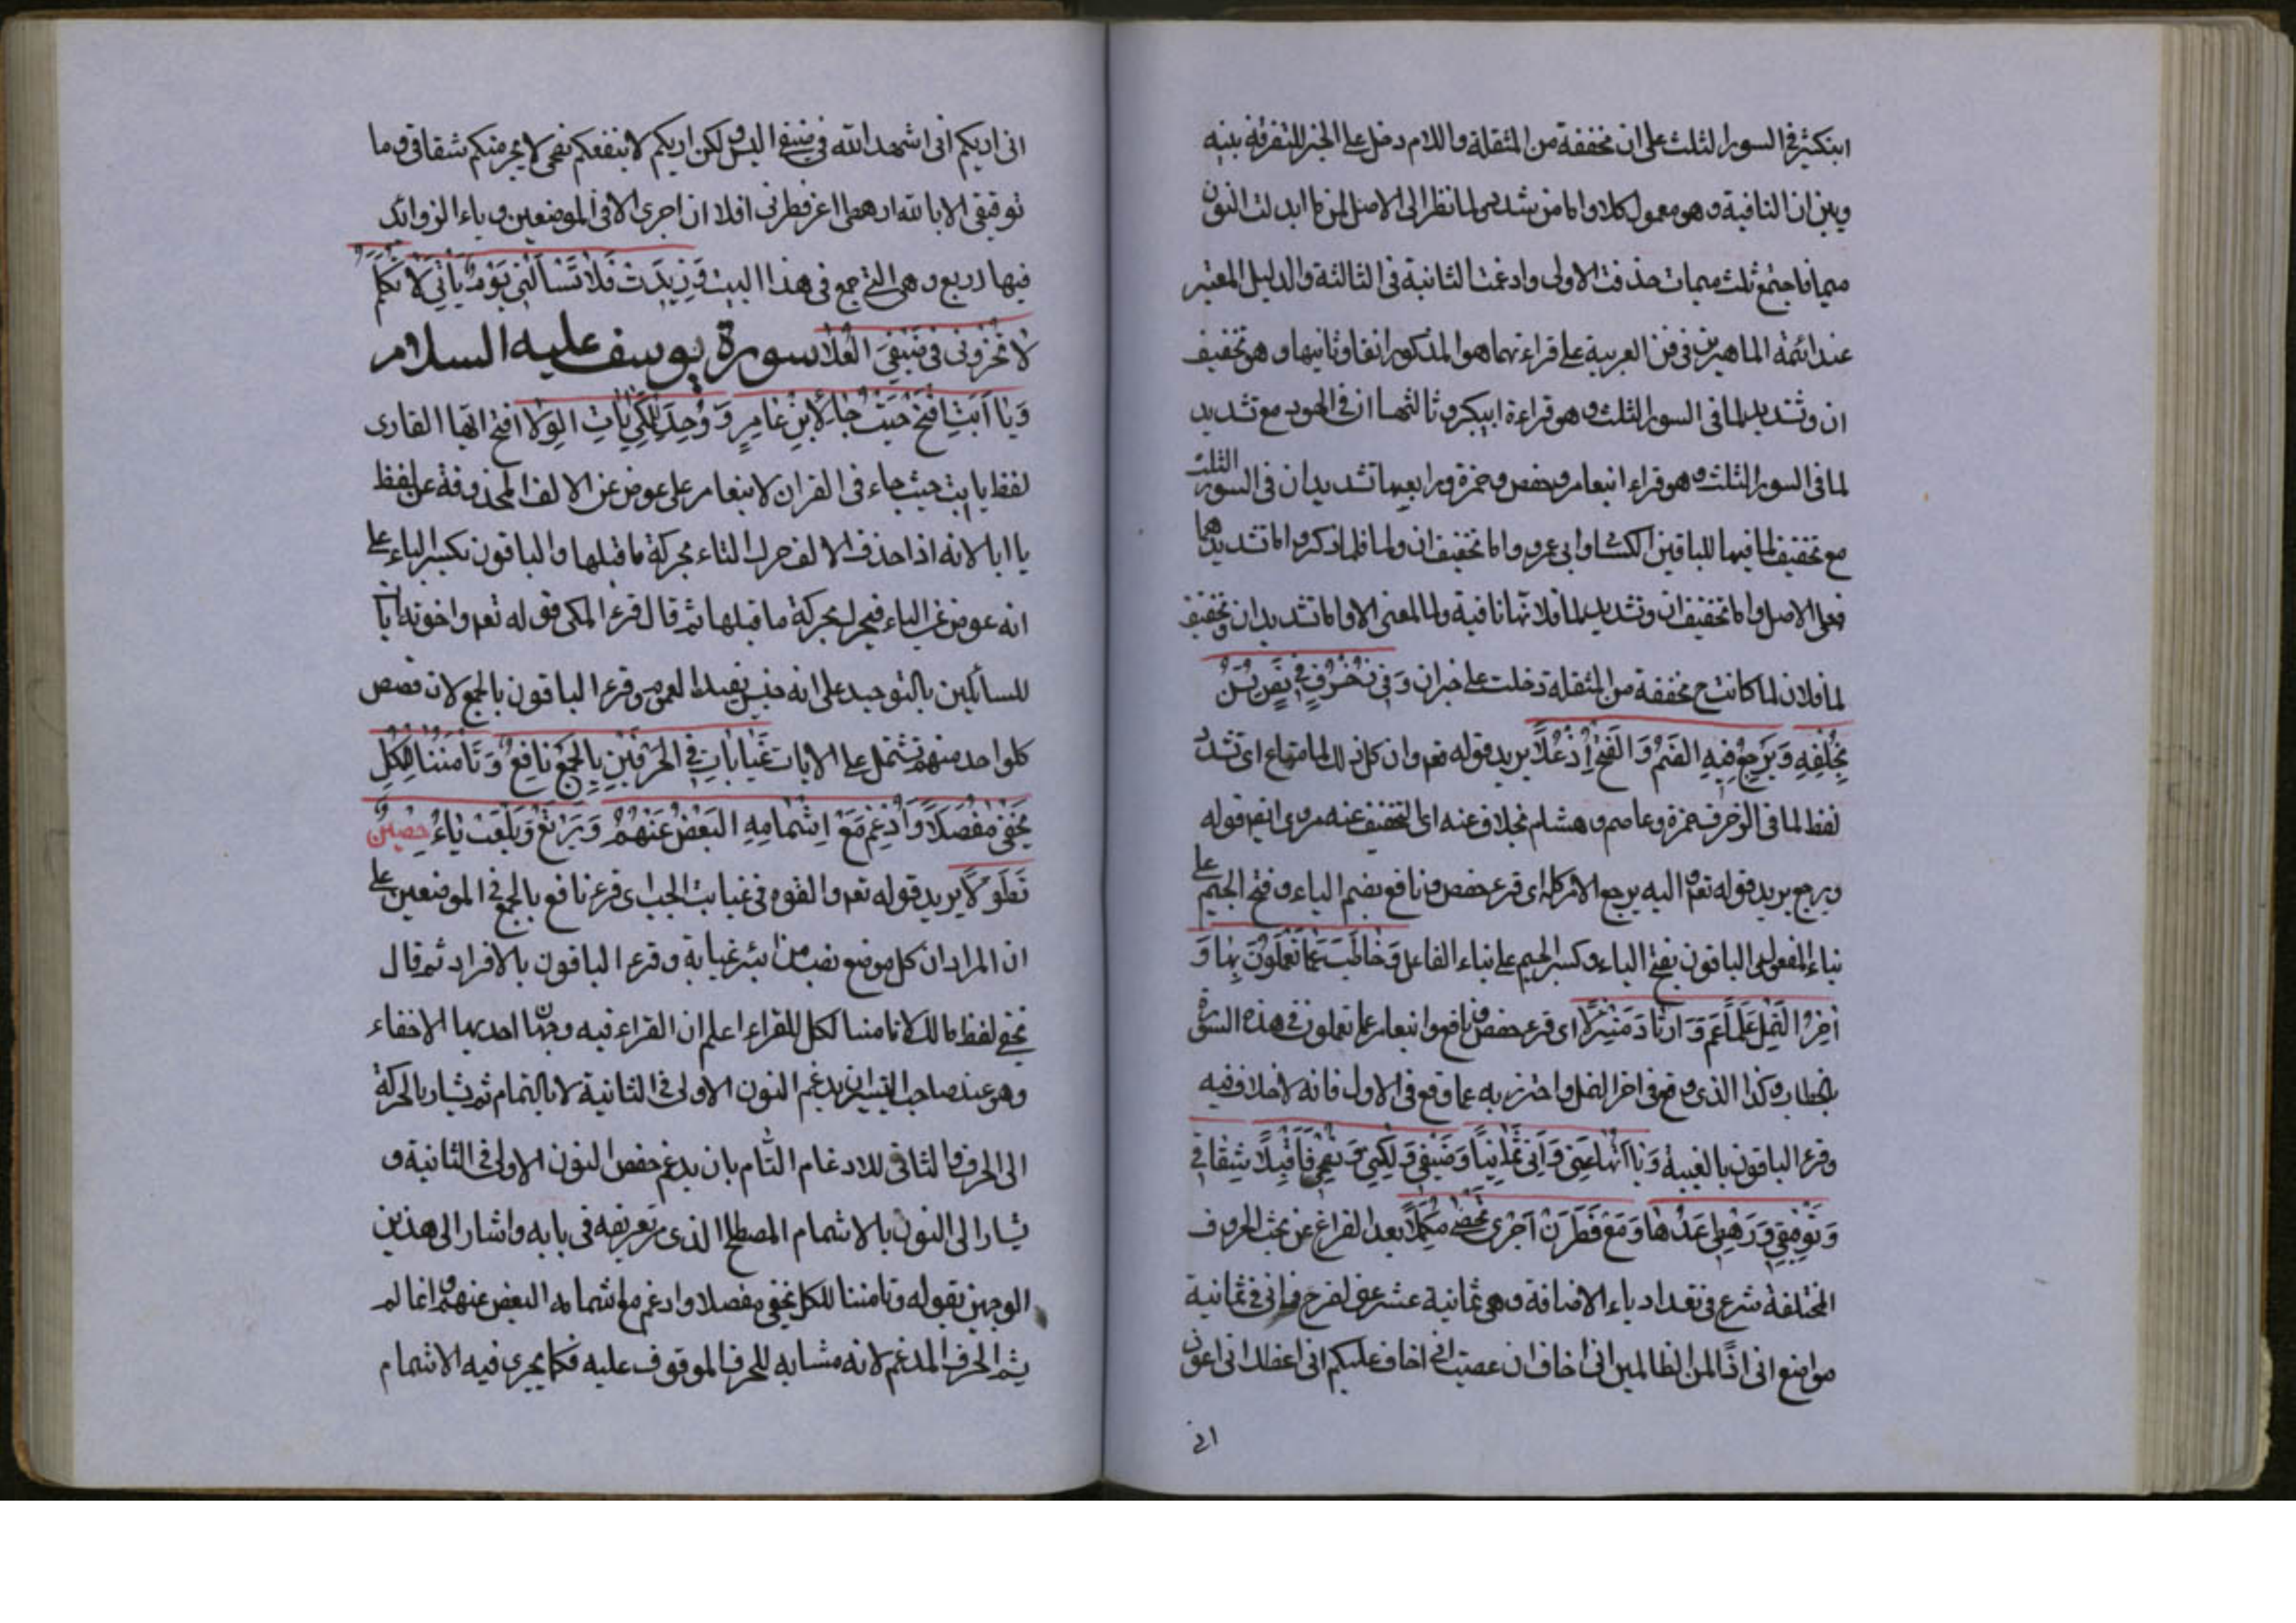 ابنكثير في السور الثلث على ان مخففة من المثقلة واللام دخل على الخبر للتفرقة بينه
وبين ان النافية وهو معمول كلا واما من شدد لما نظر الى الاصل لمن ما ابدلت النون
ميما فاجتمع ثلث ميمات حذفت الاولى وادغمت الثانية في الثالثة والدليل المعتبر
عند ائمة الماهرين في فن العربية على قراءتهما هو المذكور انفا وثانيها وهو تخفيف
ان وتشديد لما في السور الثلث وهو قراءة ابيبكر وثالثها ان في الهود مع تشديد
لما في السور الثلث وهو قراءة ابنعامر وحفص وحمزة ورابعها تشديد ان في السور الثلث
مع تخفيف لما فيها للباقين الكسا وابى عمرو واما تخفيف ان ولما فلما ذكر واما تشديدهما
فعلى الاصل واما تخفيف ان وتشديد لما فلانها نافية ولما لمعنى الا واما تشديد ان وتخفيف
لما فلان لما كانت ح مخففة من المثقلة دخلت على خبر ان وَفِي زُخْرُفٍ فِي نَصِّ لُسْنٍ
بِخُلْفِهِ وَيَرْجِعُ فِيهِ الضَّمُّ وَالفَتْحُ إِذْ عَلَا يريد قوله تعه وان كل ذلك لما متاع اى تشدد
لفظ لما في الزخرف حمزة وعاصم وهشام بخلاف عنه اى التخفيف عنه مروى ايضا قوله
ويرجع يريد قوله تعه واليه يرجع الامر كله اى قرء حفص ونافع بضم الياء وفتح الجيم على
بناء المفعول والباقون بفتح الياء وكسر الجيم على بناء الفاعل وَخَاطَبَ عَمَّا تَعْمَلُونَ بِهَا وَ
آخِرَ النَّمْلِ عِلْمًا عَمَّ وَارْتَادَ مَنْزِلًا اى قرء حفص ونافع وابنعامر عما تعملون في هذه السورة
بالخطاب وكذا الذي وقع في اخر النمل واحترز به عما وقع في الاول فانه لا خلاف فيه
وقرء الباقون بالغيبة وَيَاآتُهَا عَنِّي وَإِنِّي ثَمَانِيًا وَضَيْفِي وَلَكِنِّي وَنُصْحِي فَاقْبَلَا شِقَاقِي
وَتَوْفِيقِي وَرَهْطِي عُدَّهَا وَمَعْ فَطَرَنْ أَجْرِي مَعًا تُحْصِ مُكْمِلًا بعد الفراغ عن بحث الحروف
المختلفة شرع في تعداد ياء الاضافة وهي ثمانية عشر عني لفرح واني في ثمانية
مواضع اني اذا لمن الظالمين اني اخاف ان عصيت اني اخاف عليكم اني اعظك اني اعوذ
انى
انى اريكم انى اشهد الله في ضيفي اليس ولكن اريكم لا ينفعكم نصحى لا يجرمنكم شقاقى وما
توفيقي الا بالله ارهطى اعز فطرنى افلا ان اجرى الا في الموضعين وياء الزوائد
فيها اربع وهي التي جمع في هذا البيت وَزِيدَتْ فَلَا تَسْأَلْنِي يَوْمَ يَأْتِي لَا تَكَلَّمُ
لَا تُخْزُونِي فِي ضَيْفِيَ الْعُلَا سورة يوسف عليه السلام
وَيَا أَبَتِ افْتَحْ حَيْثُ جَا لِابْنِ عَامِرٍ وَوُحِّدَ لِلْمَكِّي آيَاتُ الوِلَا افتح ايها القارى
لفظ يا ابت حيث جاء في القران لابنعامر على عوض عن الالف المحذوفة عن لفظ
يا ابا لانه اذا حذف الالف حرك التاء بحركة ما قبلها والباقون بكسر التاء على
انه عوض عن الياء فيحرك بحركة ما قبلها ثم قال قرء المكي قوله تعه واخوته ايات
للسائلين بالتوحيد على انه جنس يفيد العموم وقرء الباقون بالجمع لان قصص
كلواحد منهم تشتمل على الايات غَيَابَاتِ فِي الحَرْفَيْنِ بِالجَمْعِ نَافِعٌ وَتَأْمَنُنَا لِلْكُلِّ
يُخْفَى مُفَصَّلًا وَأُدْغِمَ مَعْ إِشْمَامِهِ البَعْضُ عَنْهُمُ وَيَرْتَعْ وَيَلْعَبْ يَاءُ حِصْنٍ
تَطَوَّلَا يريد قوله تعه والقوه في غيابت الجب اى قرء نافع بالجمع في الموضعين على
ان المراد ان كل موضع نصب من البئر غيابة وقرء الباقون بالافراد ثم قال
يخفى لفظ مالك لا تامننا لكل القراء اعلم ان القراء فيه وجهان احديها الاخفاء
وهو عند صاحب التيسير ان يدغم النون الاولى في الثانية لا بالتمام ثم يشار بالحركة
الى الحرف والثاني للادغام التام بان يدغم حفص النون الاولى في الثانية و
يشار الى النون بالاشمام المصطلح الذى مر تعريفه في بابه واشار الى هذين
الوجهين بقوله وتامننا للكل يخفى مفصلا وادغم مع اشمامه البعض عنهم وانما لم
يشم الحرف المدغم لانه مشابه للحرف الموقوف عليه فكما يجرى فيه الاشمام